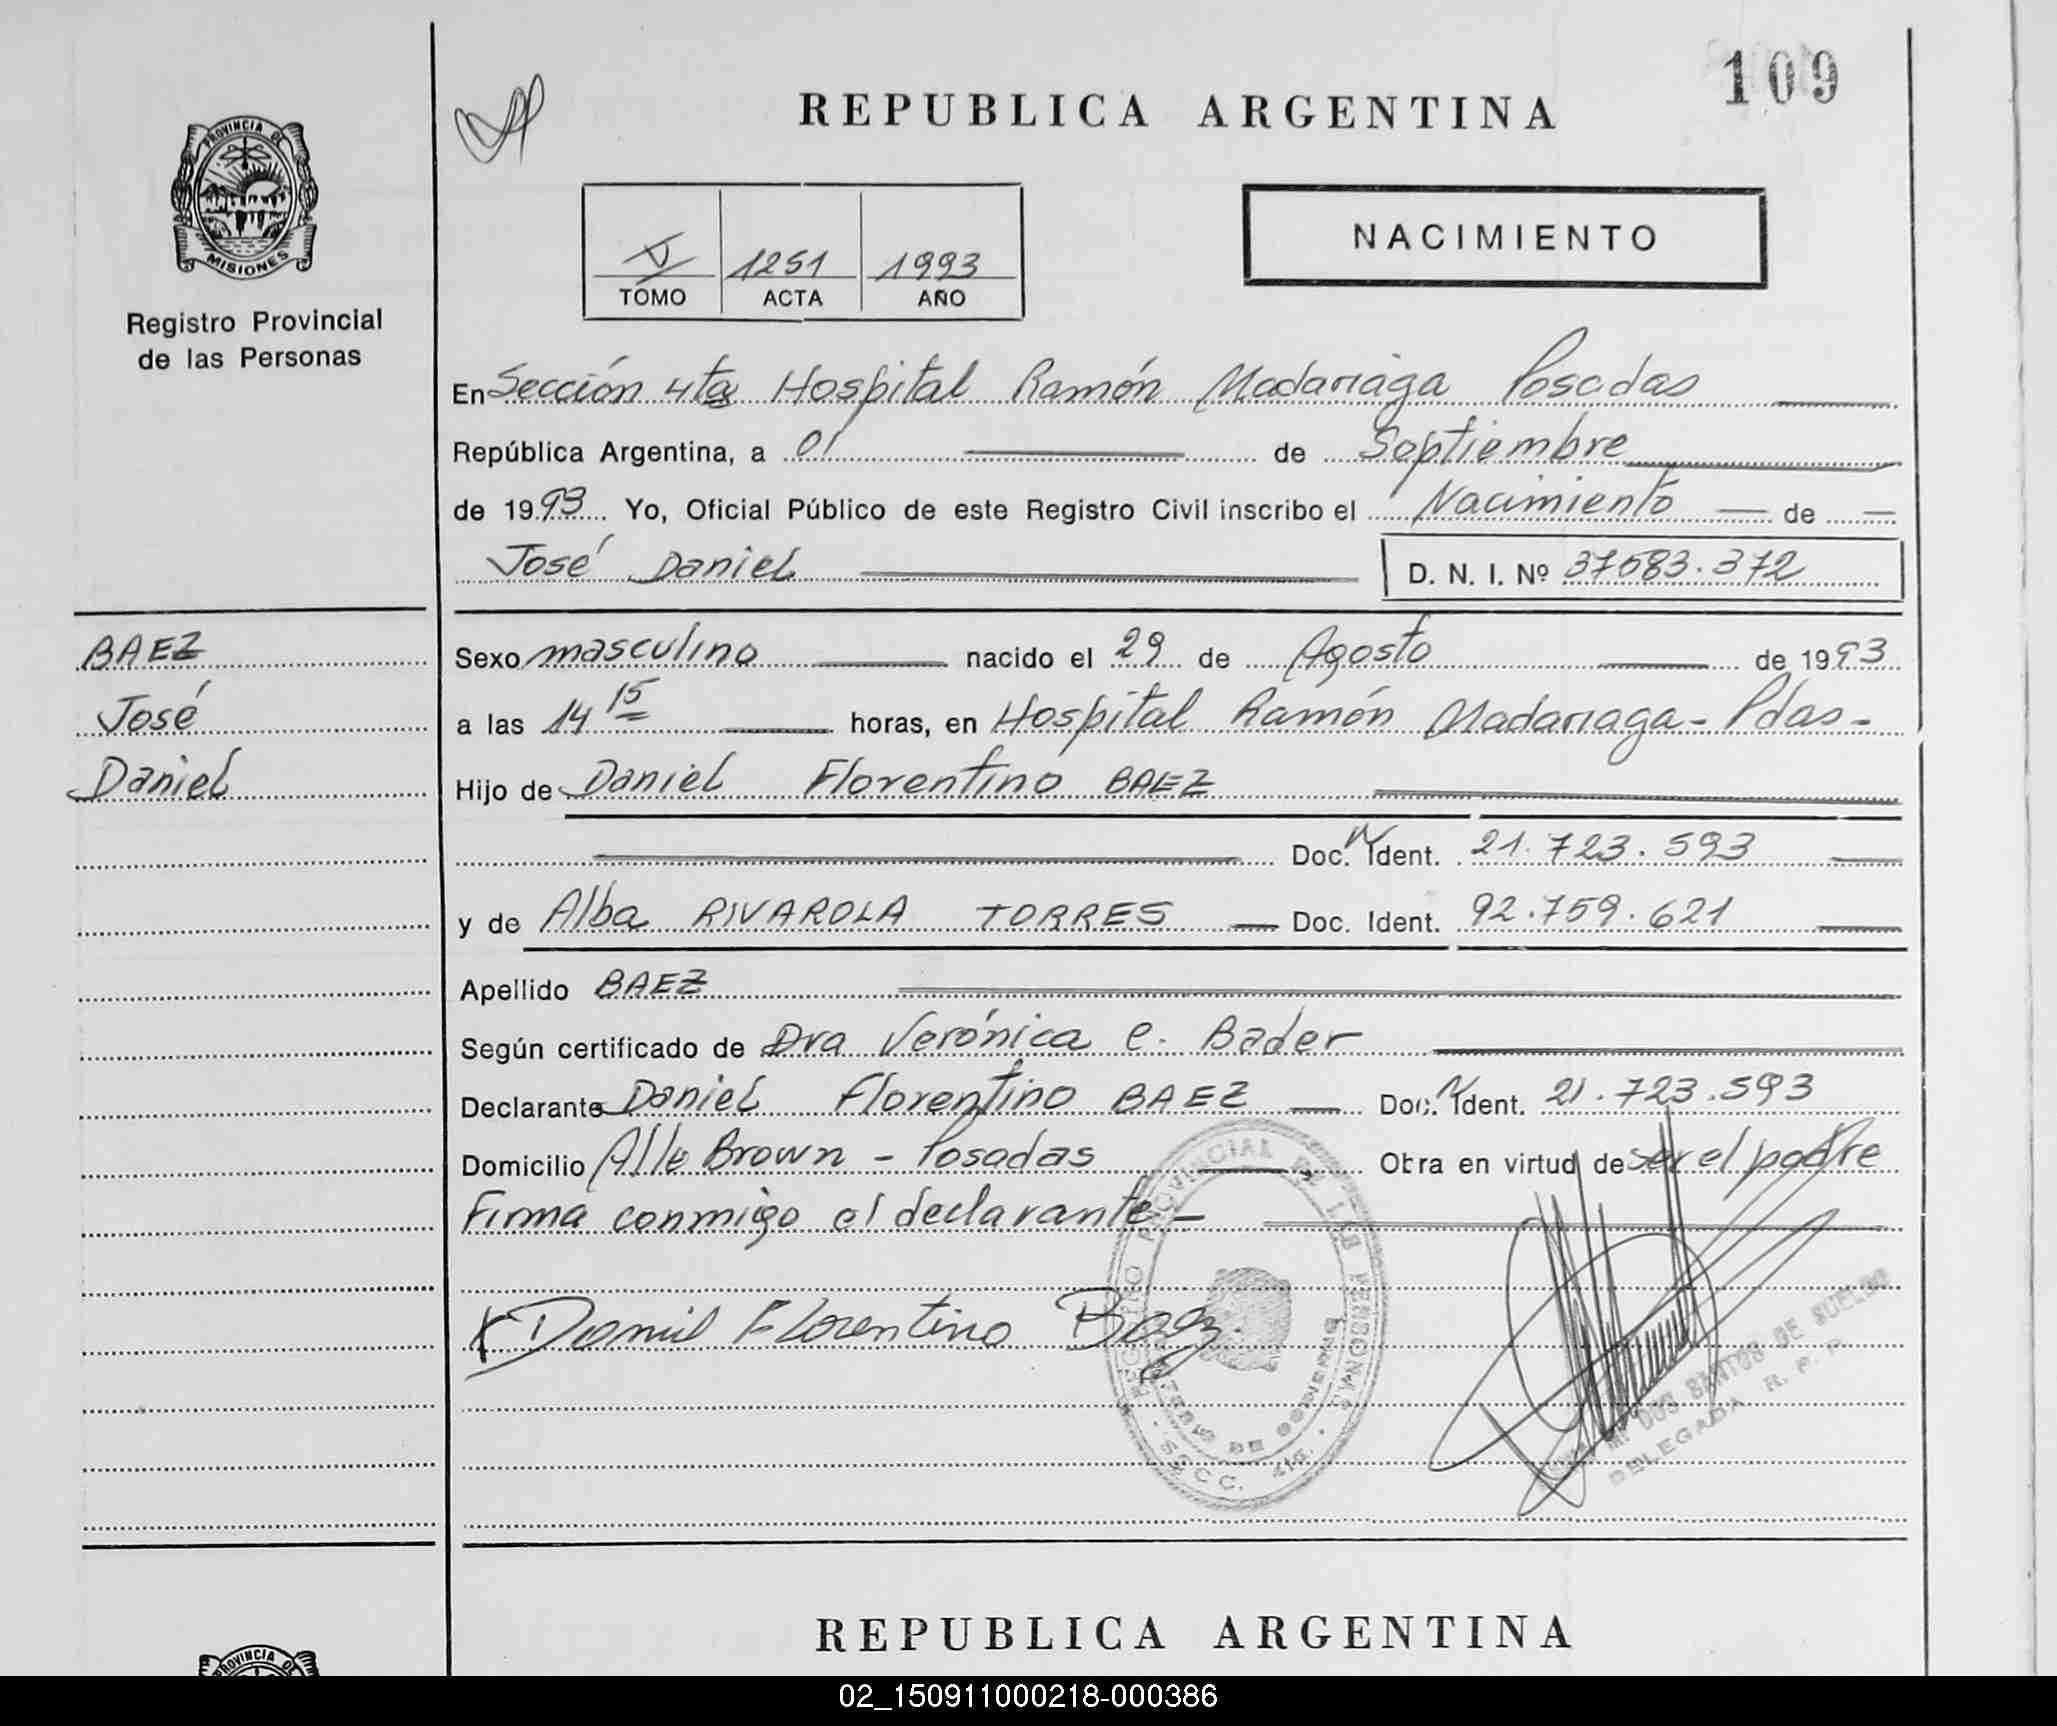 109
REPUBLICA ARGENTINA
PROVINCIA DE
MISIONES
Registro Provincial
de las Personas
NACIMIENTO
V 1251 1993
TOMO ACTA AÑO
En Sección 4ta Hospital Ramón Madariaga Posadas
República Argentina, a 01 de Septiembre
de 1993 Yo, Oficial Público de este Registro Civil inscribo el Nacimiento de
José Daniel D. N. I. Nº 37583.372
BAEZ
José
Daniel
Sexo masculino nacido el 29 de Agosto de 1993
a las 14 15 horas, en Hospital Ramón Madariaga - Pdas -
Hijo de Daniel Florentino BAEZ
Doc. N Ident. 21.723.593
y de Alba RIVAROLA TORRES Doc. Ident. 92.759.621
Apellido BAEZ
Según certificado de Dra Verónica e. Bader
Declarante Daniel Florentino BAEZ Doc. N Ident. 21.723.593
Domicilio Alte Brown - Posadas Obra en virtud de ser el padre
Firma conmigo el declarante -
Daniel Florentino Baez
REGISTRO PROVINCIAL DE LAS PERSONAS
DE GOBIERNO
SECC. 4ta.
DOS SANTOS DE SUELDO
DELEGADA R. P. P.
REPUBLICA ARGENTINA
PROVINCIA DE
02_150911000218-000386